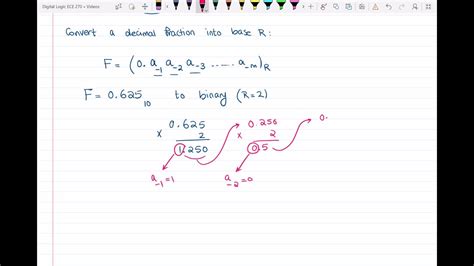 Digital Logic ECE-270 • Videos
Convert a decimal fraction into base R:
F = (0. a₋₁ a₋₂ a₋₃ ...... a₋ₘ)R
F = 0.625₁₀ to binary (R=2)
0.625 0.250 0.
x 2 x 2
1.250 0.5
a₋₁=1 a₋₂=0